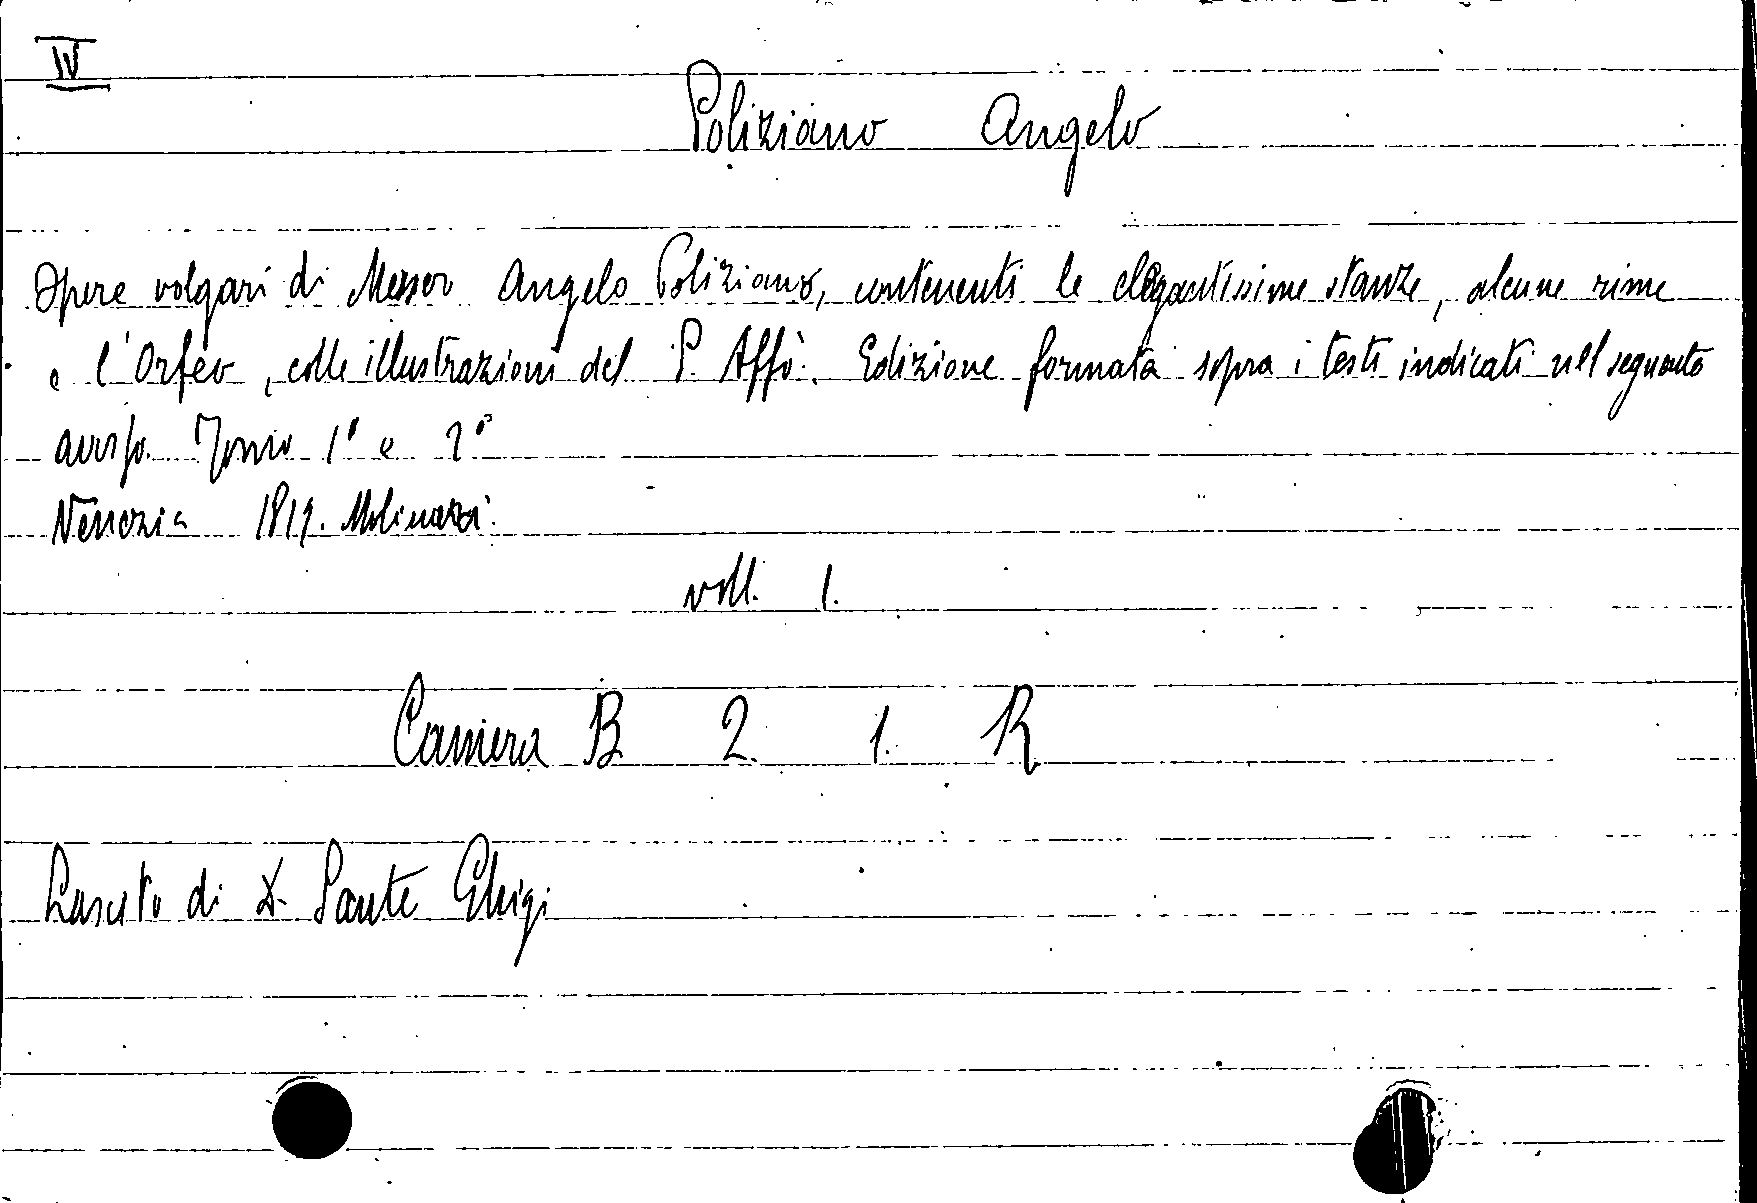 IV
Poliziano Angelo
Opere volgari di Messer Angelo Poliziano, contenenti le elegantissime stanze, alcune rime
e l'Orfeo, colle illustrazioni del P. Affò. Edizione formata sopra i testi indicati nel seguente
avviso. Tomo 1° e 2°
Venezia 1819. Molinari.
voll. 1.
Camera B 2. 1. R
Lascito di D. Sante Ghigi